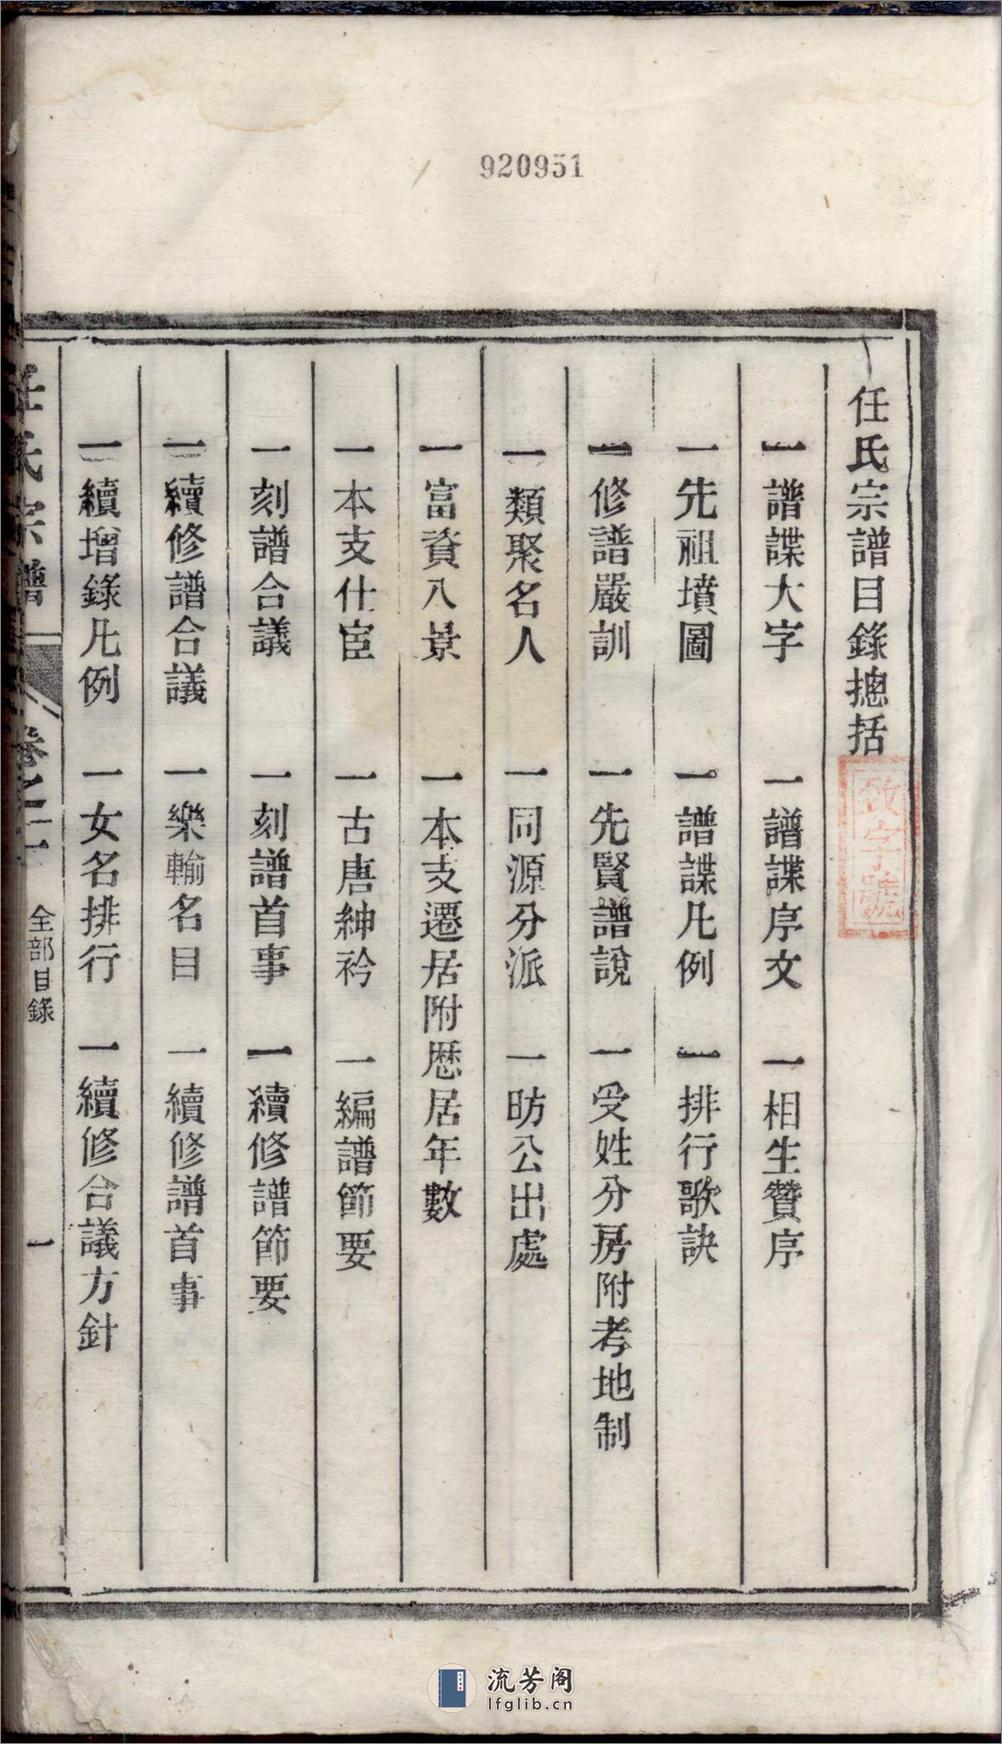 920951
任氏宗譜目錄摠括
一譜諜大字 一譜諜序文 一相生贊序
一先祖墳圖 一譜諜凡例 一排行歌訣
一修譜嚴訓 一先賢譜說 一受姓分房附考地制
一類聚名人 一同源分派 一昉公出處
一富資八景 一本支遷居附歴居年數
一本支仕宦 一古唐紳衿 一編譜節要
一刻譜合議 一刻譜首事 一續修譜節要
一續修譜合議 一樂輸名目 一續修譜首事
一續增錄凡例 一女名排行 一續修合議方針
任氏宗譜 卷之一 全部目錄 一
流芳阁
lfglib.cn